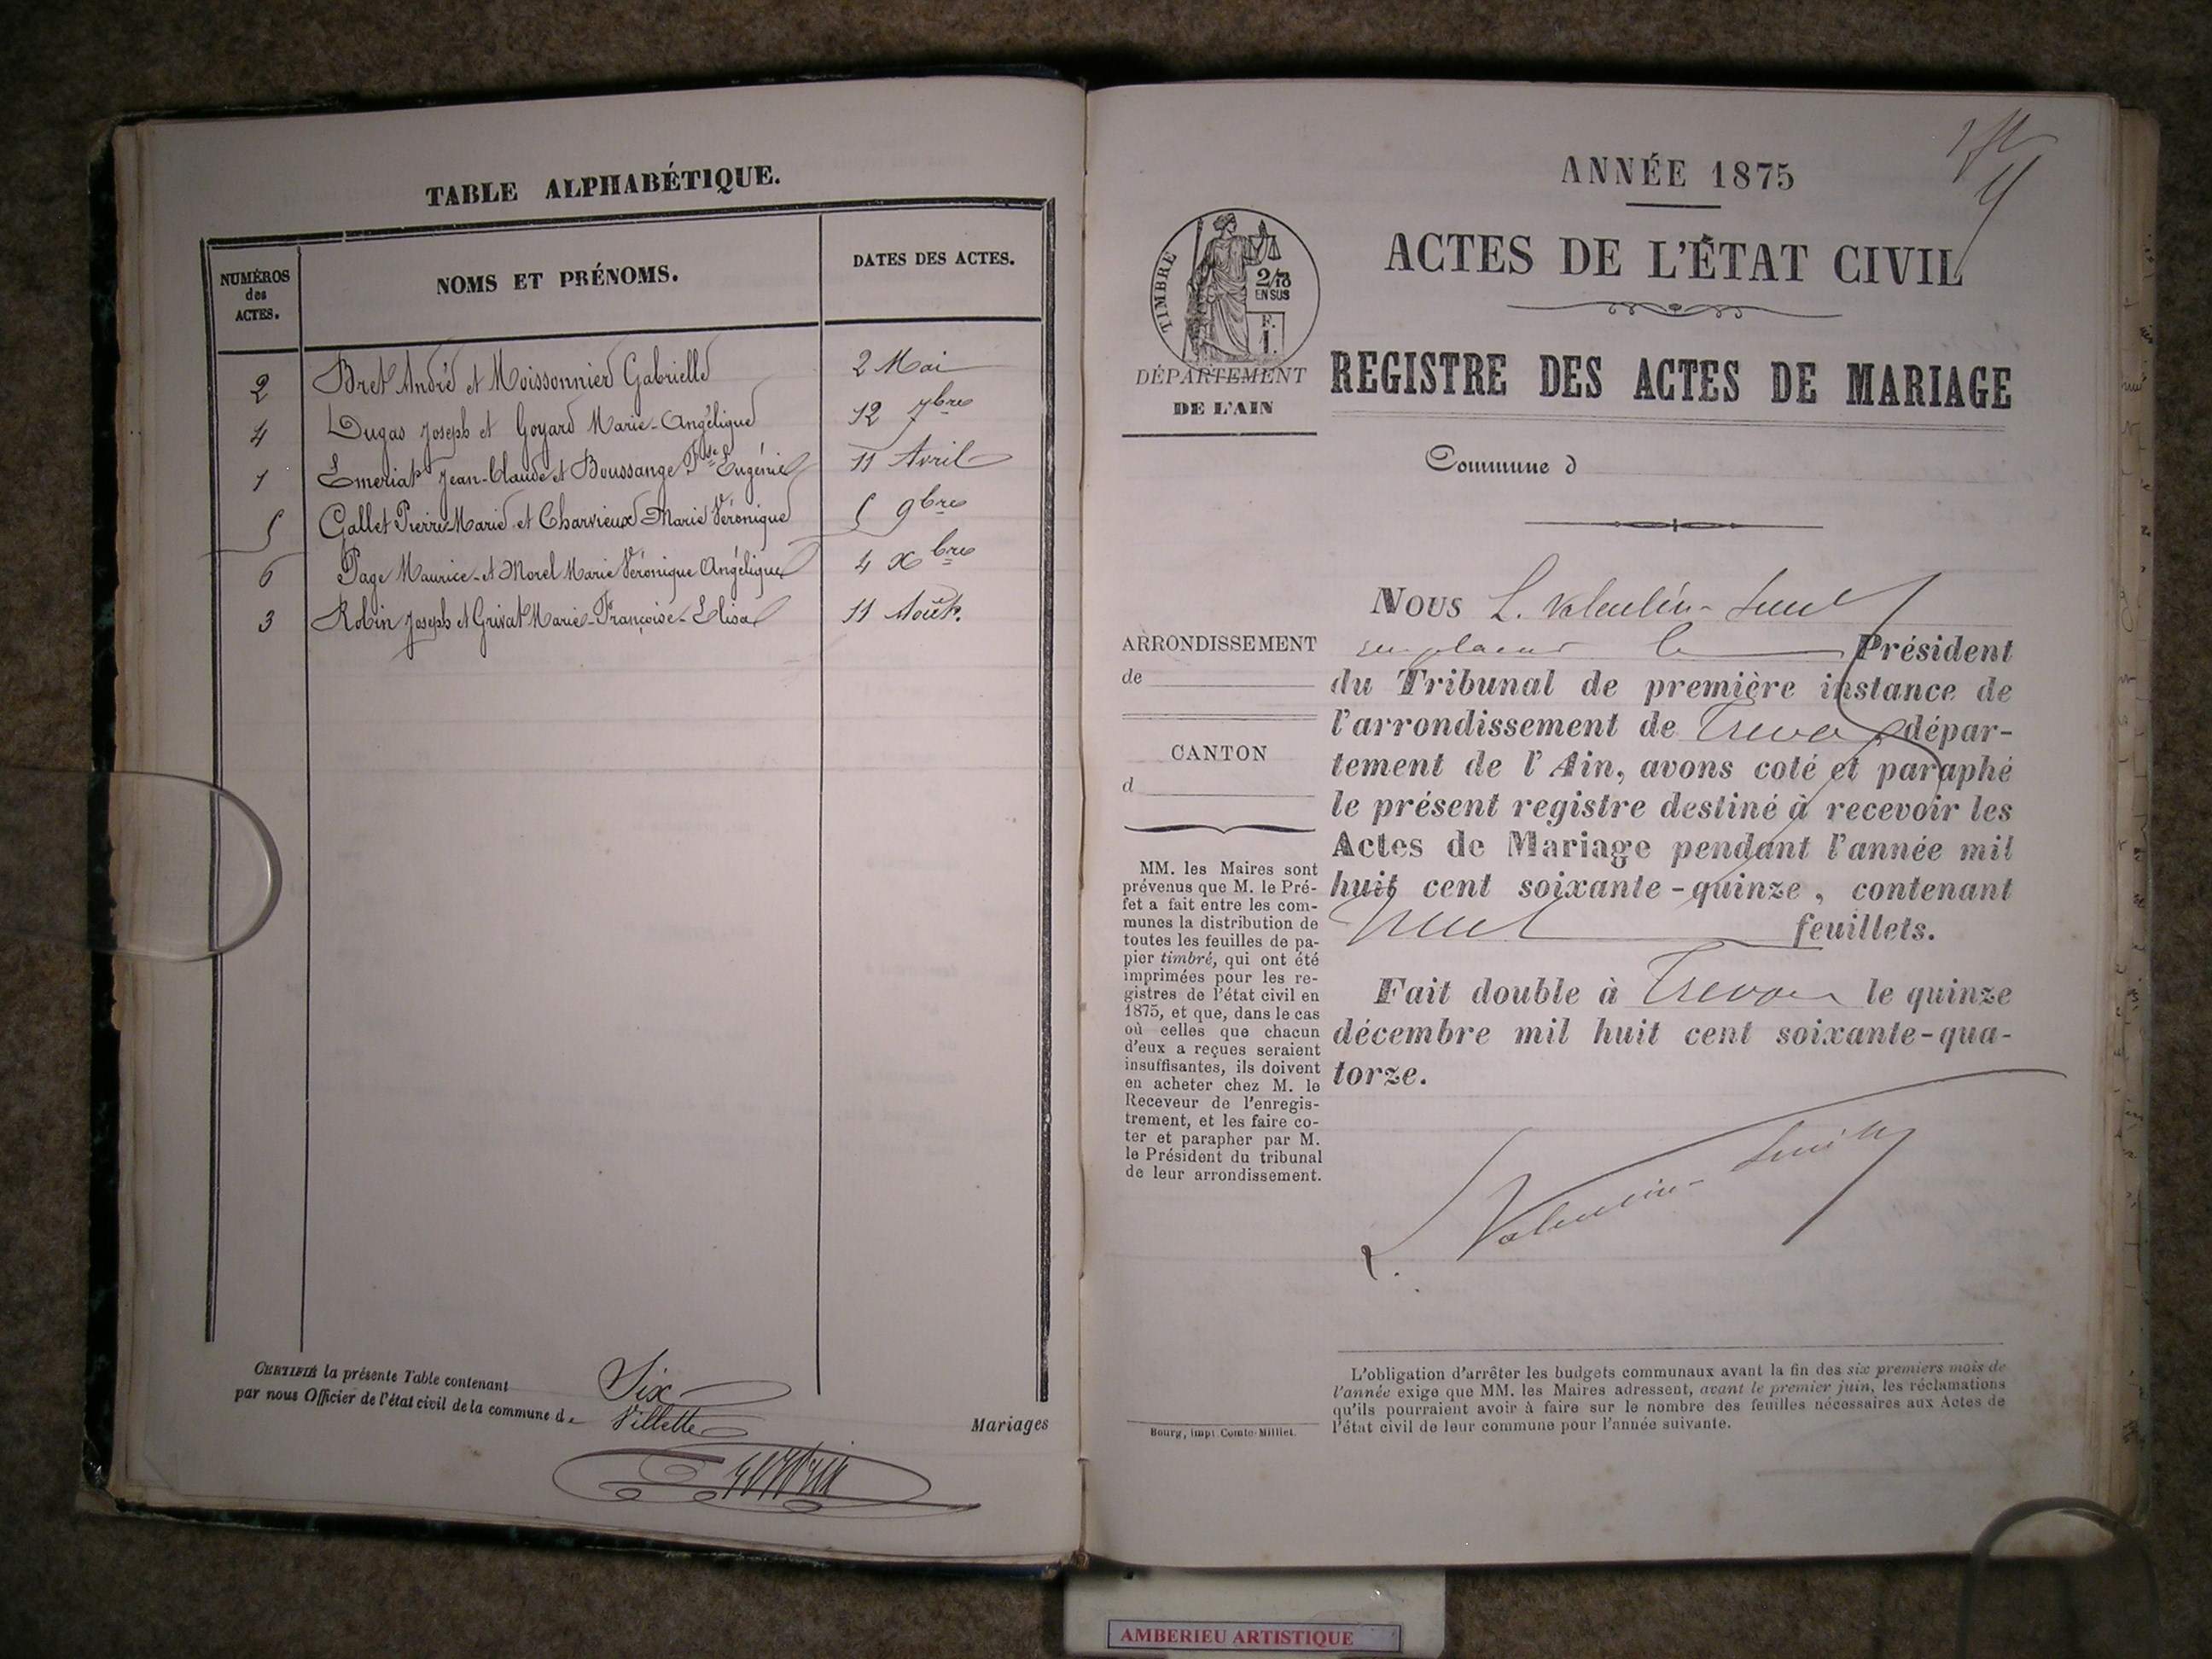 TABLE ALPHABÉTIQUE.
NUMÉROS
des
ACTES.
NOMS ET PRÉNOMS.
DATES DES ACTES.
2 Bret André et Moissonnier Gabrielle 2 Mai
4 Dugas Joseph et Goyard Marie-Angélique 12 7bre
1 Emeriat Jean-Claude et Boussange Eugénie 11 Avril
5 Gallet Pierre Marie et Charvieux Marie Véronique 5 9bre
6 Page Maurice et Morel Marie Véronique Angélique 4 Xbre
3 Robin Joseph et Grivat Marie-Françoise-Elisa 11 Août.
CERTIFIÉ la présente Table contenant Six Mariages
par nous Officier de l'état civil de la commune de Villette
ANNÉE 1875
ACTES DE L'ÉTAT CIVIL
TIMBRE
2/10
EN SUS
F.
1.
DÉPARTEMENT
DE L'AIN
REGISTRE DES ACTES DE MARIAGE
Commune d
ARRONDISSEMENT
de
CANTON
d
MM. les Maires sont
prévenus que M. le Pré-
fet a fait entre les com-
munes la distribution de
toutes les feuilles de pa-
pier timbré, qui ont été
imprimées pour les re-
gistres de l'état civil en
1875, et que, dans le cas
où celles que chacun
d'eux a reçues seraient
insuffisantes, ils doivent
en acheter chez M. le
Receveur de l'enregis-
trement, et les faire co-
ter et parapher par M.
le Président du tribunal
de leur arrondissement.
Bourg, impr. Comte-Milliet.
Nous L. Valentin-Smith
le Président
du Tribunal de première instance de
l'arrondissement de Trévoux dépar-
tement de l'Ain, avons coté et paraphé
le présent registre destiné à recevoir les
Actes de Mariage pendant l'année mil
huit cent soixante-quinze, contenant
feuillets.
Fait double à Trévoux le quinze
décembre mil huit cent soixante-qua-
torze.
L. Valentin-Smith
L'obligation d'arrêter les budgets communaux avant la fin des six premiers mois de
l'année exige que MM. les Maires adressent, avant le premier juin, les réclamations
qu'ils pourraient avoir à faire sur le nombre des feuilles nécessaires aux Actes de
l'état civil de leur commune pour l'année suivante.
AMBERIEU ARTISTIQUE